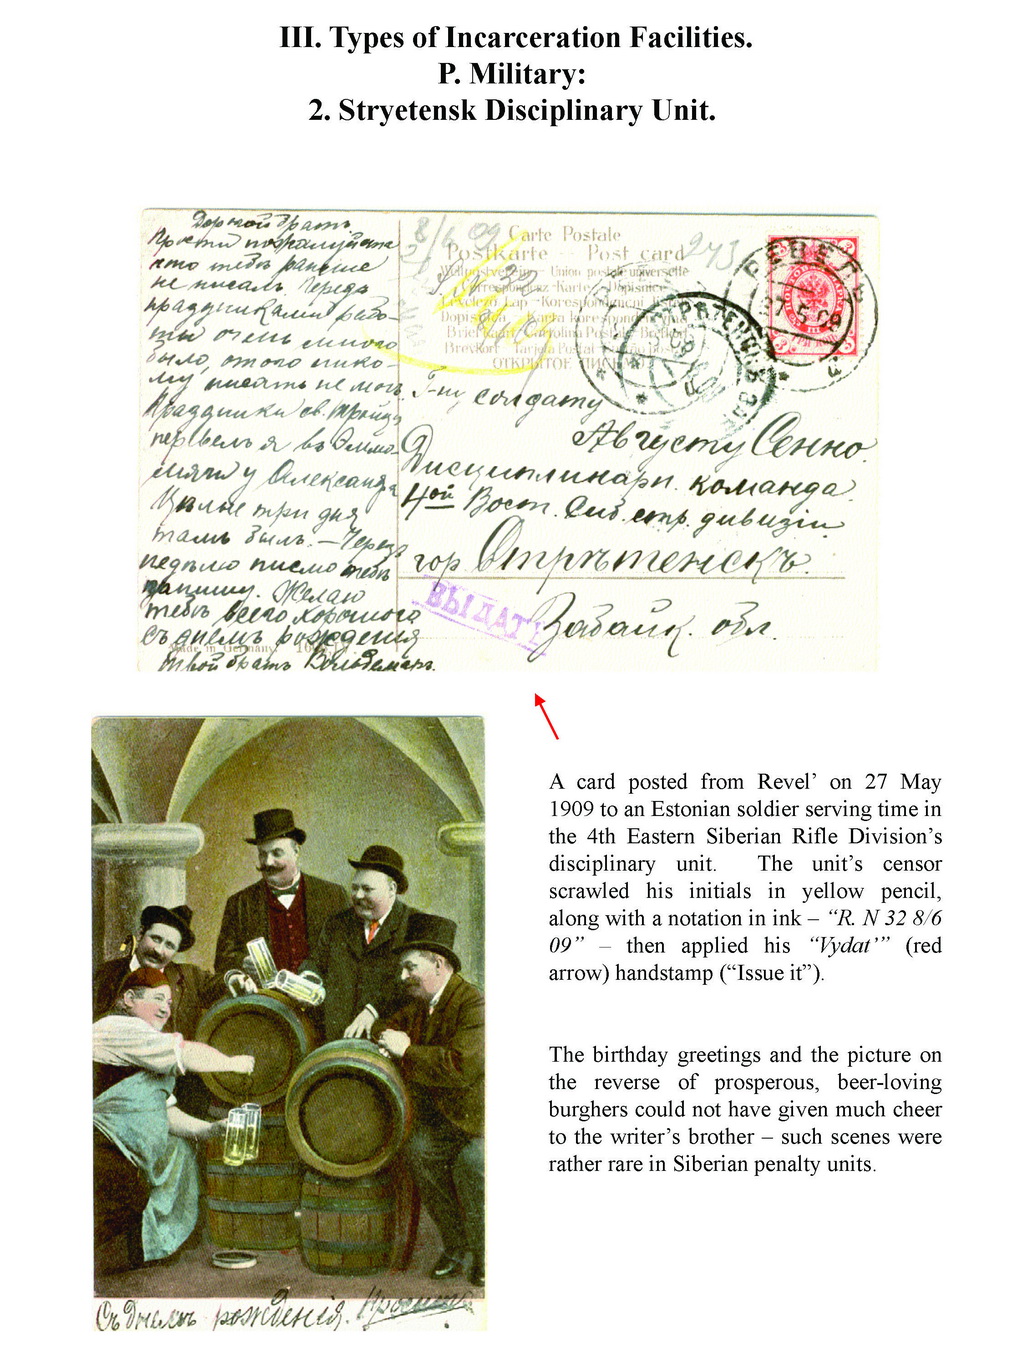 III. Types of Incarceration Facilities.
P. Military:
2. Stryetensk Disciplinary Unit.
Дорогой братъ
Прости пожалуйста
что тебѣ раньше
не писалъ. Передъ
праздниками рабо-
ты очень много
было, этого нико-
му писать не могъ.
Праздники св. Тройцы
перевелъ я въ
у Александра
Цѣлые три дня
тамъ былъ. — Черезъ
недѣлю писмо тебѣ
напишу. Желаю
тебѣ всего хорошаго
Съ днемъ рожденія
твой братъ Вольдемаръ.
Made in Germany
8/6 09
243
Carte Postale
Postkarte – Post card
Weltpostverein – Union postale universelle
Correspondenz-Karte – Dopisnice
Levelező Lap – Korespondencni listek
Dopisnica – Karta korespondencyjna
Brief kaart – Cartolina Postale – Brefkort
Brevkort – Tarjeta Postal
ОТКРЫТОЕ ПИСЬМО
РЕВЕЛЬ
27 5 09
Г-ну солдату
Августу Сенно.
Дисциплинарн. команда
4ой Вост. Сиб. стр. дивизіи
гор Стрѣтенскъ.
Забайк. обл.
ВЫДАТЬ
A card posted from Revel’ on 27 May
1909 to an Estonian soldier serving time in
the 4th Eastern Siberian Rifle Division’s
disciplinary unit. The unit’s censor
scrawled his initials in yellow pencil,
along with a notation in ink – “R. N 32 8/6
09” – then applied his “Vydat’” (red
arrow) handstamp (“Issue it”).
The birthday greetings and the picture on
the reverse of prosperous, beer-loving
burghers could not have given much cheer
to the writer’s brother – such scenes were
rather rare in Siberian penalty units.
Съ Днемъ рожденія.